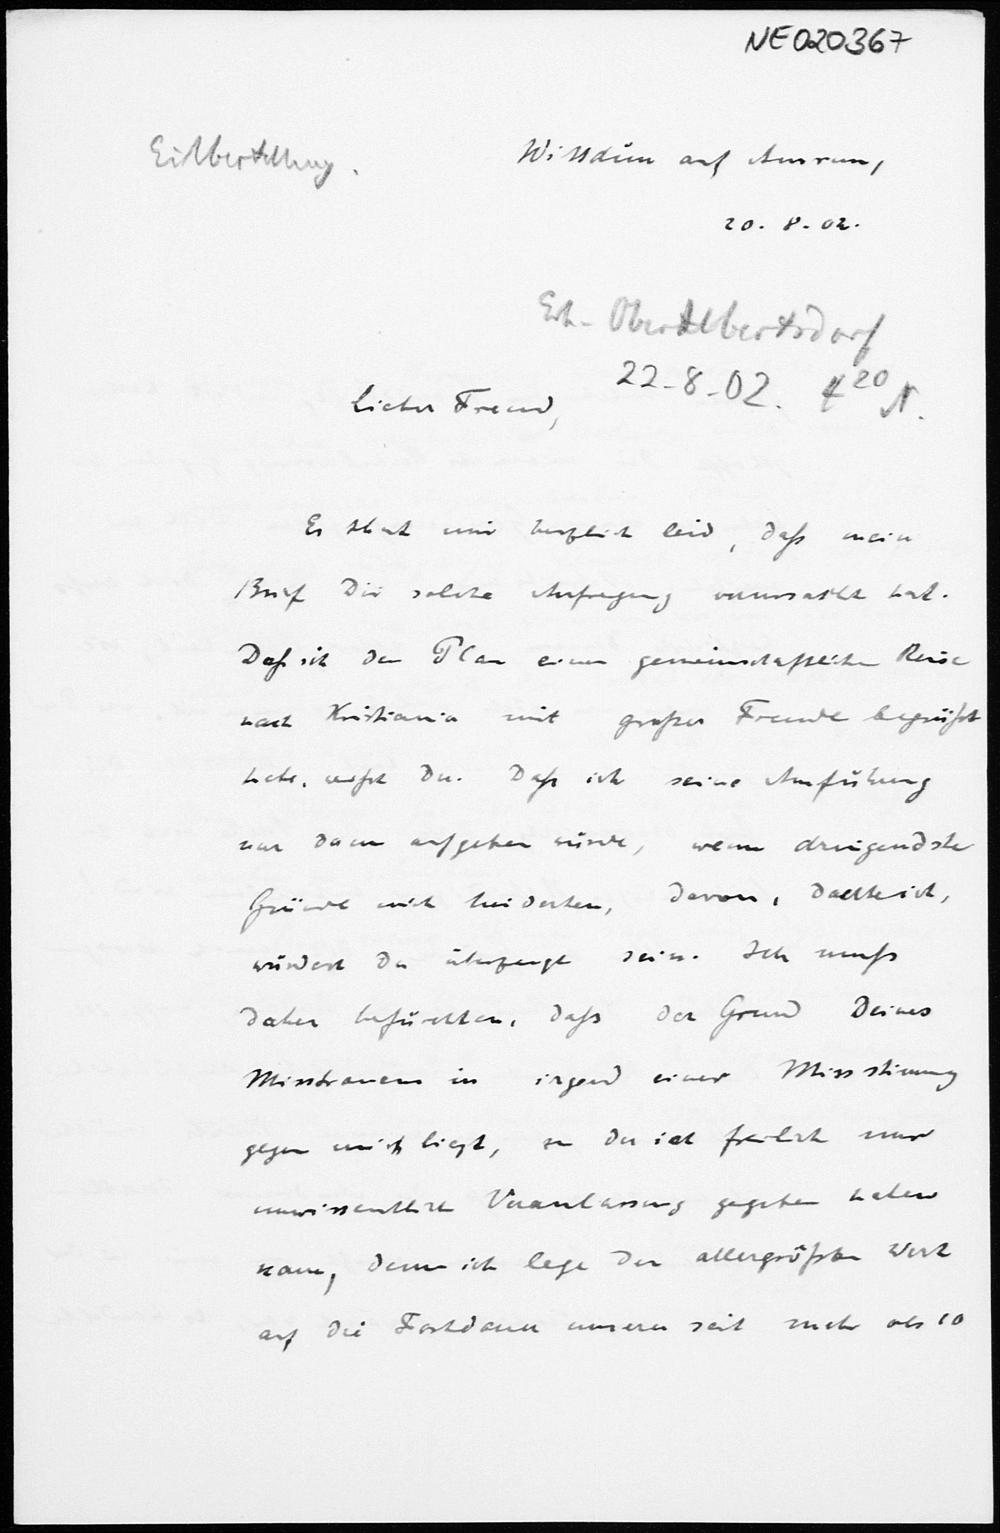 NE020367
Eilbestellung.
Wittdün auf Amrum,
20. 8. 02.
Erh. Oberalbertsdorf
22-8-02. 4 20 N.
Lieber Freund,
Es thut mir herzlich leid, daß mein
Brief Dir solche Aufregung verursacht hat.
Daß ich den Plan einer gemeinschaftlichen Reise
nach Kristiania mit großer Freude begrüßt
habe, weißt Du. Daß ich seine Ausführung
nur dann aufgeben würde, wenn dringendste
Gründe mich hinderten, davon, dachte ich,
würdest Du überzeugt sein. Ich muß
daher befürchten, daß der Grund Deines
Misstrauens in irgend einer Missstimmung
gegen mich liegt, zu der ich freilich nur
unwissentlich Veranlassung gegeben haben
kann, denn ich lege den allergrößten Wert
auf die Fortdauer unserer seit mehr als 10